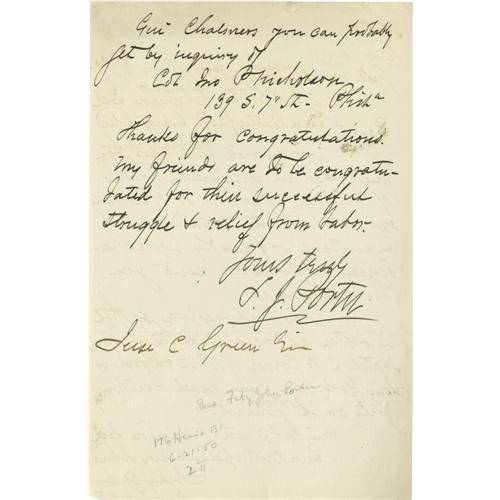 Genl Chalmers you can probably
get by inquiry of
Col Jno P Nicholson
139 S. 7" St - Phila
Thanks for congratulations.
My friends are to be congratu-
lated for their successful
struggle & relief from labor.
Yours truly
F. J. Porter
Jesse C Green
Genl. Fitz John Porter
6-21-50